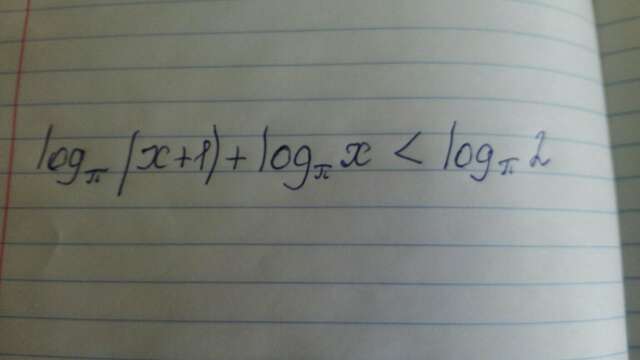 log_π (x+1) + log_π x < log_π 2